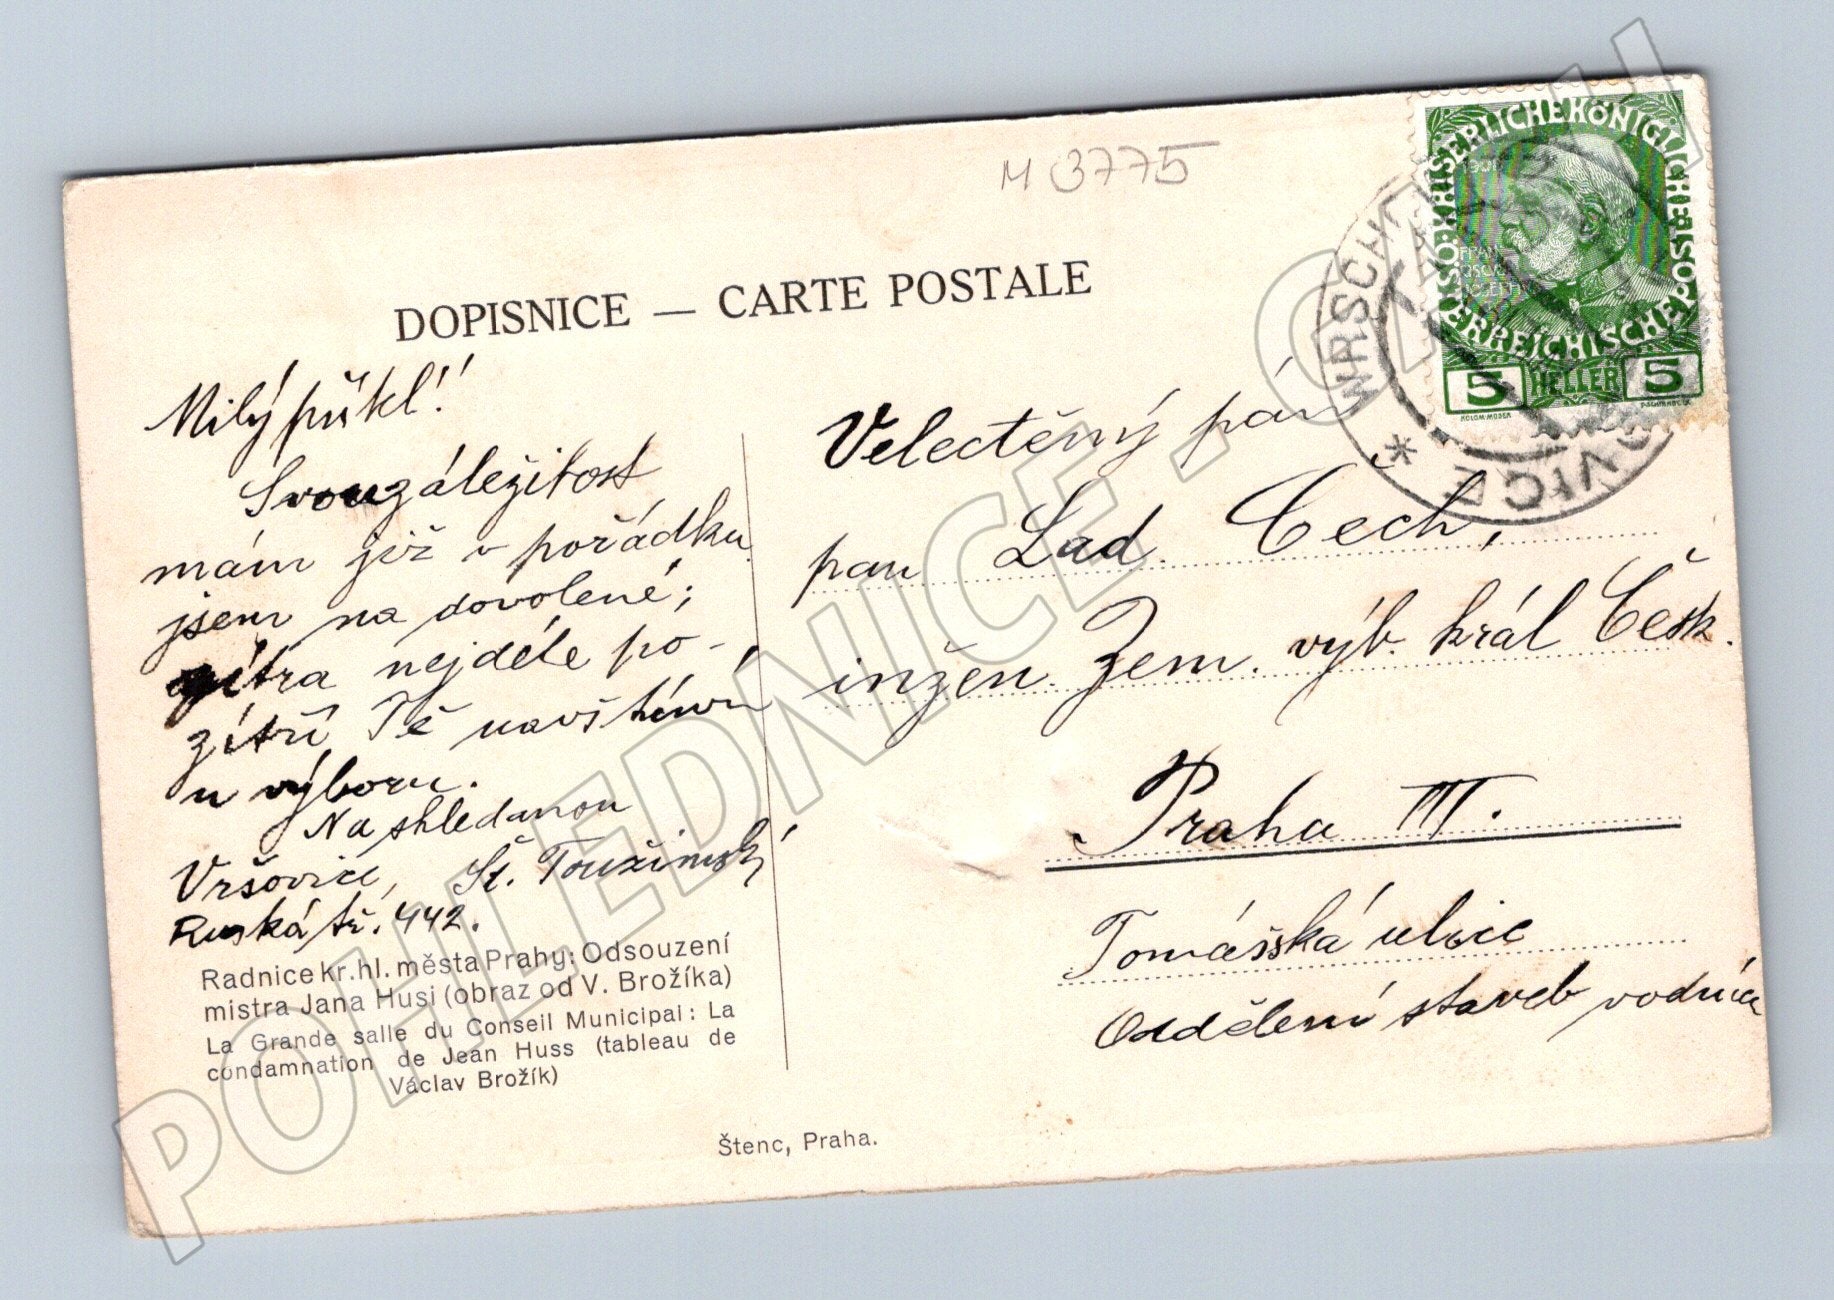 M 3775
DOPISNICE — CARTE POSTALE
KAISERLICHE KÖNIGLICHE ÖSTERREICHISCHE POST
1908
FRANZ JOSEF
5 HELLER 5
KOLOM·MOSER
WRSCHOWITZ
VRŠOVICE *
Milý příkl!
Svou záležitost
mám již v pořádku
jsem na dovolené;
zítra nejdéle po-
zítří Tě navštívím
u výboru.
Na shledanou
Vršovice, St. Toužimský
Ruská tř. 442.
Radnice kr. hl. města Prahy: Odsouzení
mistra Jana Husi (obraz od V. Brožíka)
La Grande salle du Conseil Municipal: La
condamnation de Jean Huss (tableau de
Václav Brožík)
Štenc, Praha.
Velectěný pán
pan Lad. Čech,
inžen. Zem. výb. král Česk.
Praha III.
Tomášská ulice
Oddělení staveb vodních
POHLEDNICE.CZ